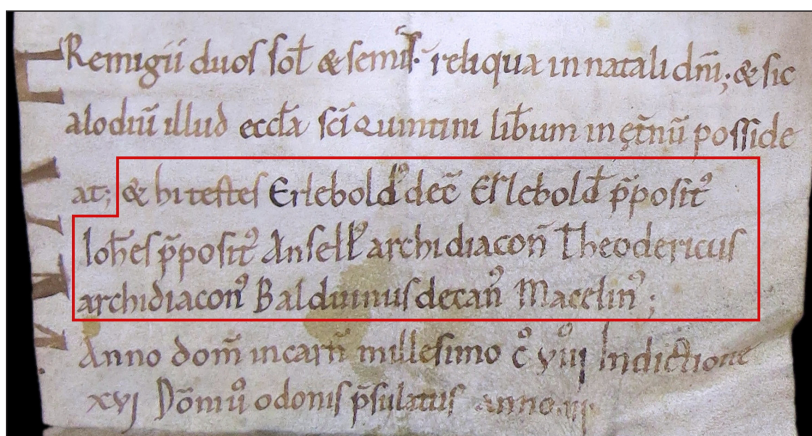 Remigii duos sol̄ & semis̄. reliqua in natali dn̄i; & sic
alodiū illud eccl̄a sc̄i quintini lib̄um in ęt̄nū posside
at; & hi testes Erlebold᾿ dec̄ Erlebold̄ p̄posit᾿
Ioh̄es p̄posit᾿ Ansell᾿ archidiacon̄ Theodericus
archidiacon᾿ Balduinus decan̄ Macelin᾿;
Anno dom̄ incarn̄ millesimo c᾿ viii Indictione
xvi Dōmū odonis p̄sulatus anno iii